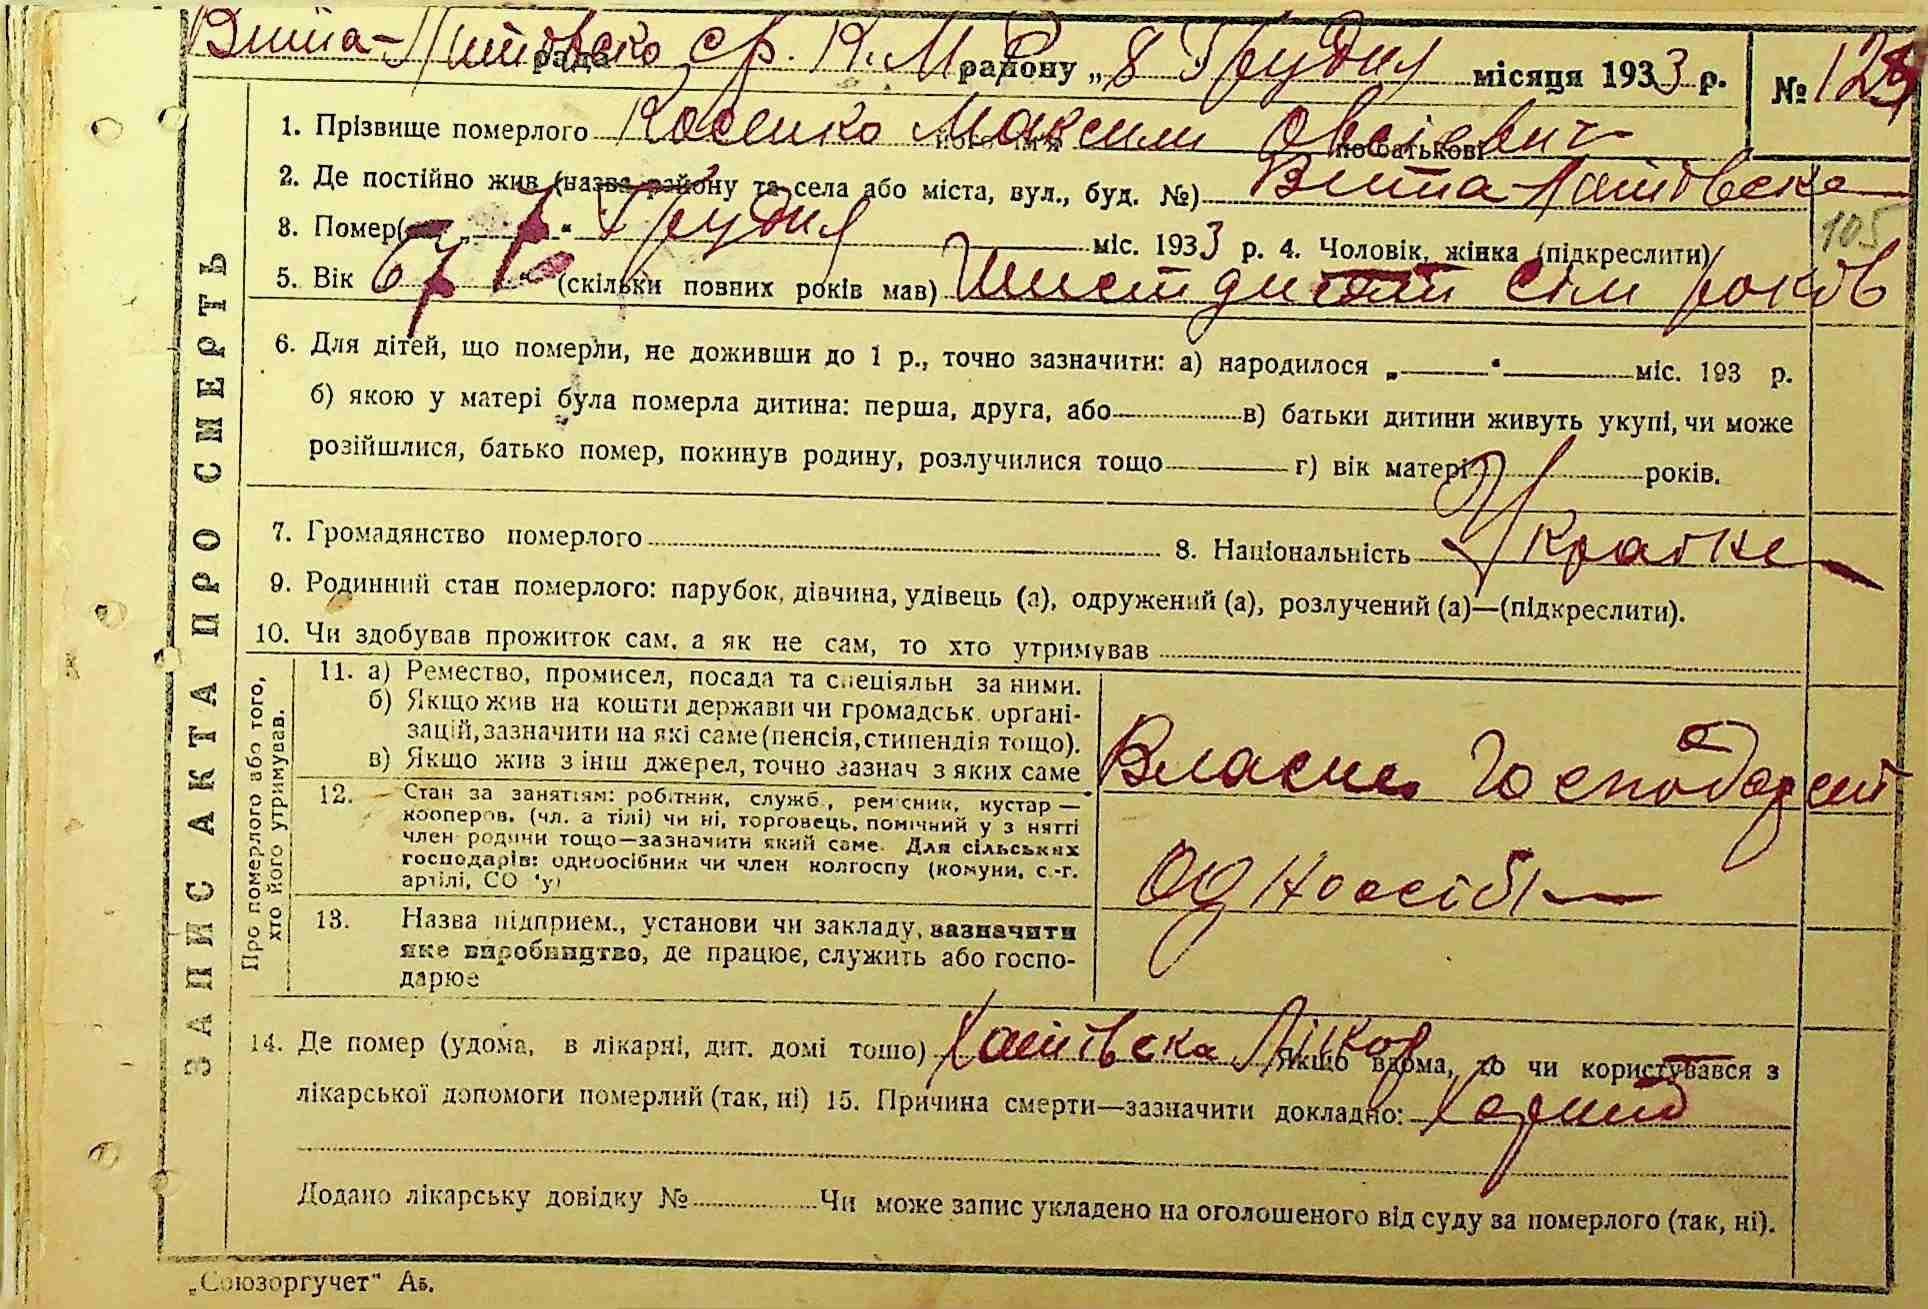 Вита-Литовско ср. К.М. рада району „8" Грудня місяця 1933 р. № 12
1. Прізвище померлого Косенко його ім'я Максим по батькові Овсієвич
2. Де постійно жив (назва району та села або міста, вул., буд. №) Вита-Литовска
105
3. Помер( „ " Грудня міс. 1933 р. 4. Чоловік, жінка (підкреслити)
5. Вік 67 (скільки повних років мав) Шистдисят сім років
6. Для дітей, що померли, не доживши до 1 р., точно зазначити: а) народилося „ " міс. 193 р.
б) якою у матері була померла дитина: перша, друга, або в) батьки дитини живуть укупі, чи може
розійшлися, батько помер, покинув родину, розлучилися тощо г) вік матері років.
7. Громадянство померлого 8. Національність Украіне
9. Родинний стан померлого: парубок, дівчина, удівець (а), одружений (а), розлучений (а)—(підкреслити).
10. Чи здобував прожиток сам, а як не сам, то хто утримував
ЗАПИС АКТА ПРО СМЕРТЬ
Про померлого або того,
хто його утримував.
11. а) Ремество, промисел, посада та спеціяльн за ними.
б) Якщо жив на кошти держави чи громадськ. органі-
зацій, зазначити на які саме (пенсія, стипендія тощо).
в) Якщо жив з інш джерел, точно зазнач з яких саме
Власне Господарст
12. Стан за заняттям: робітник, служб., ремісник, кустар —
кооперов. (чл. а тілі) чи ні, торговець, помічний у з нятті
член родини тощо—зазначити який саме. Для сільських
господарів: одноосібник чи член колгоспу (комуни, с.-г.
артілі, СО 'у)
Одноосібн
13. Назва підприєм., установи чи закладу, зазначити
яке виробництво, де працює, служить або госпо-
дарює
14. Де помер (удома, в лікарні, дит. домі тощо) Хатівска Лікар Якщо вдома, то чи користувався з
лікарської допомоги померлий (так, ні) 15. Причина смерти—зазначити докладно:
Додано лікарську довідку № Чи може запис укладено на оголошеного від суду за померлого (так, ні).
„Союзоргучет" Ав.